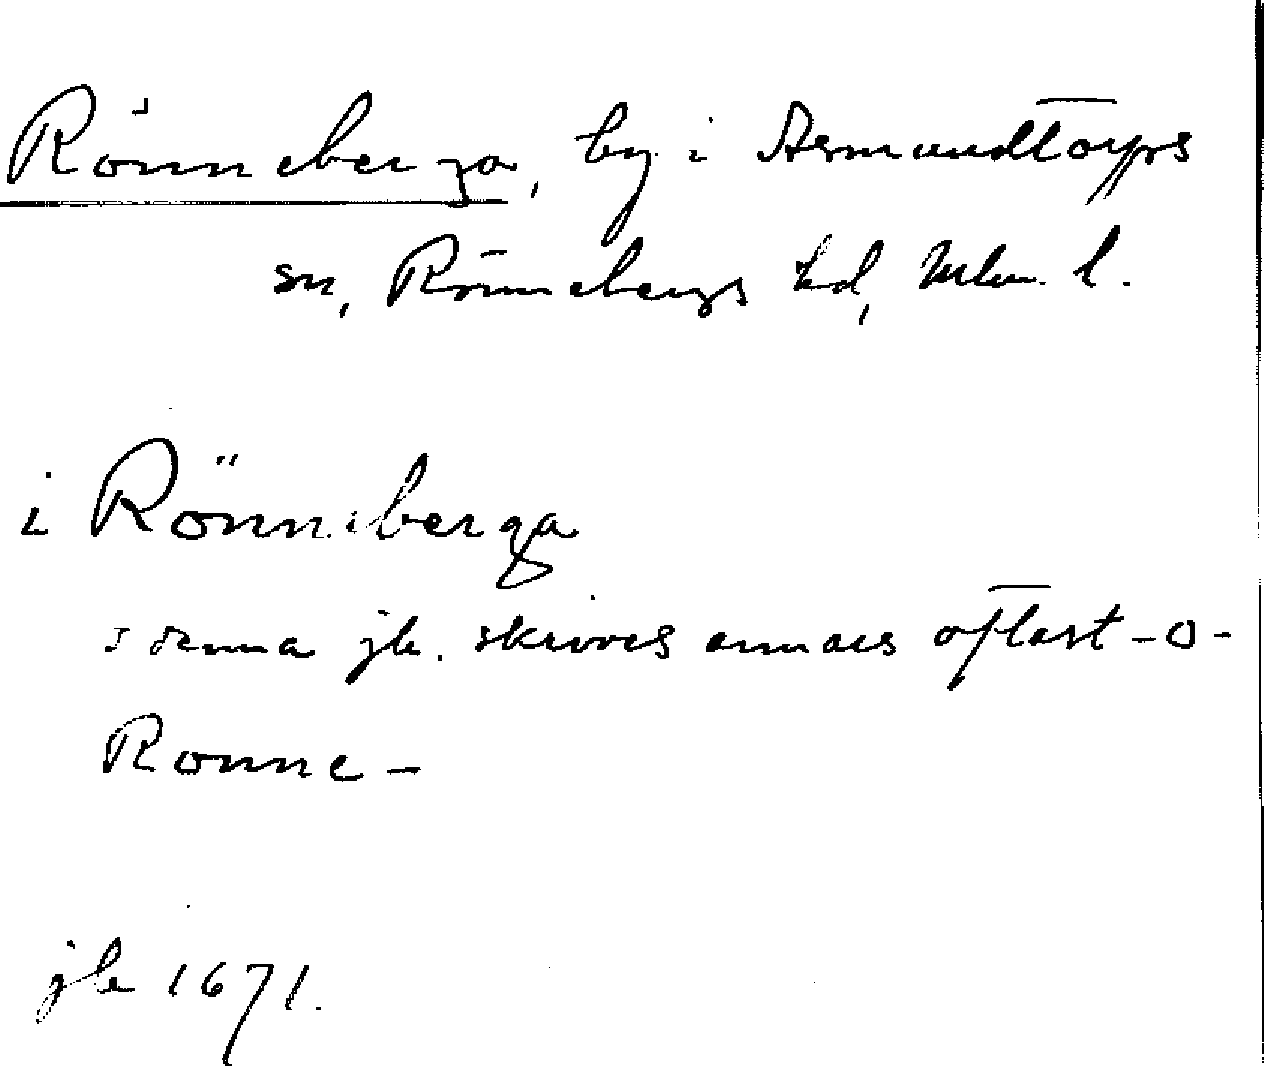 Rönneberga, by i Asmundtorps
sn, Rönnebergs hd, Mlm. l.
i Rönneberga
I denna jb. skrives annars oftast -o-
Ronne-
jb 1671.